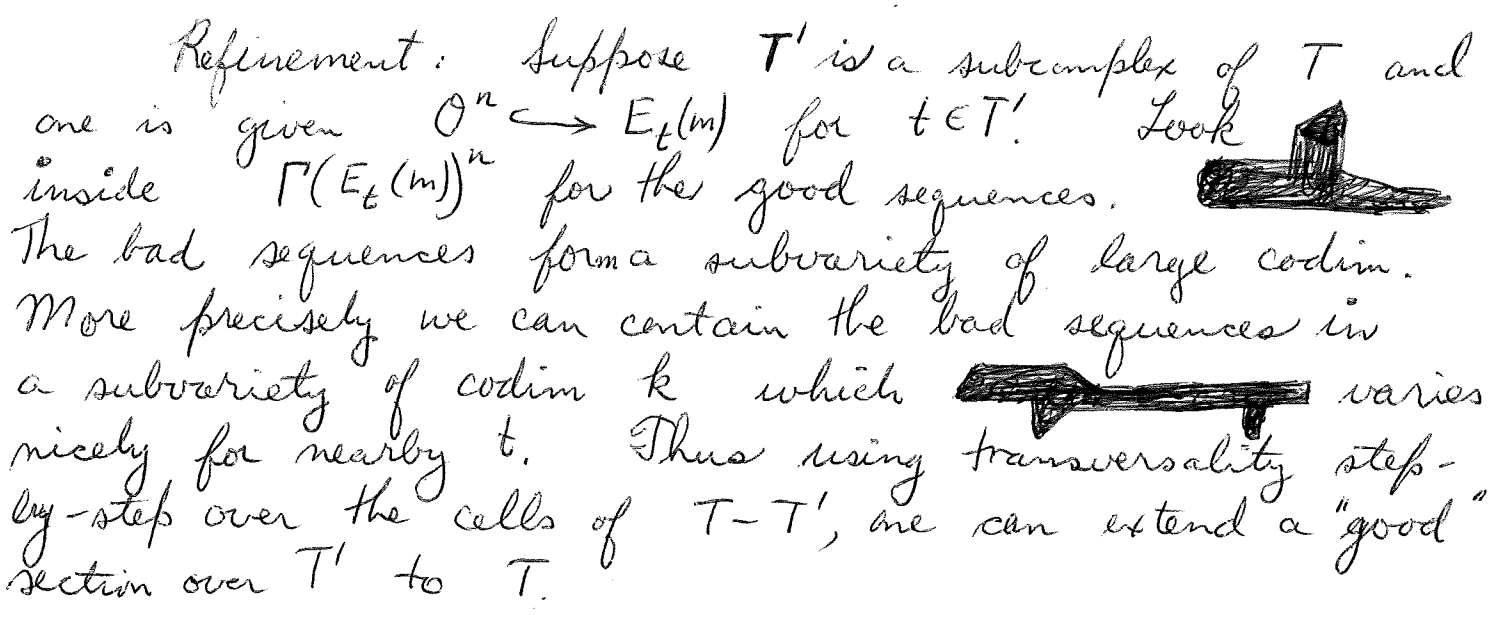 Refinement: Suppose T' is a subcomplex of T and
one is given O^n ↪ E_t(m) for t ∈ T'. Look
inside Γ(E_t(m))^n for the good sequences.
The bad sequences form a subvariety of large codim.
More precisely we can contain the bad sequences in
a subvariety of codim k which varies
nicely for nearby t. Thus using transversality step-
by-step over the cells of T - T', one can extend a "good"
section over T' to T.